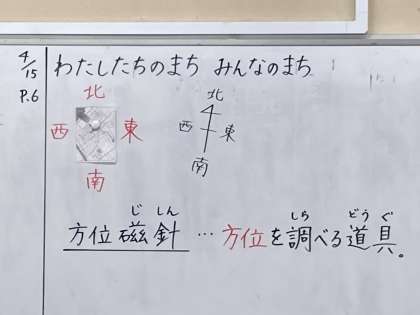 4/15
P.6
わたしたちのまち みんなのまち
北
西 東
南
北
西 東
南
じ しん しら どう ぐ
方位磁針…方位を調べる道具。